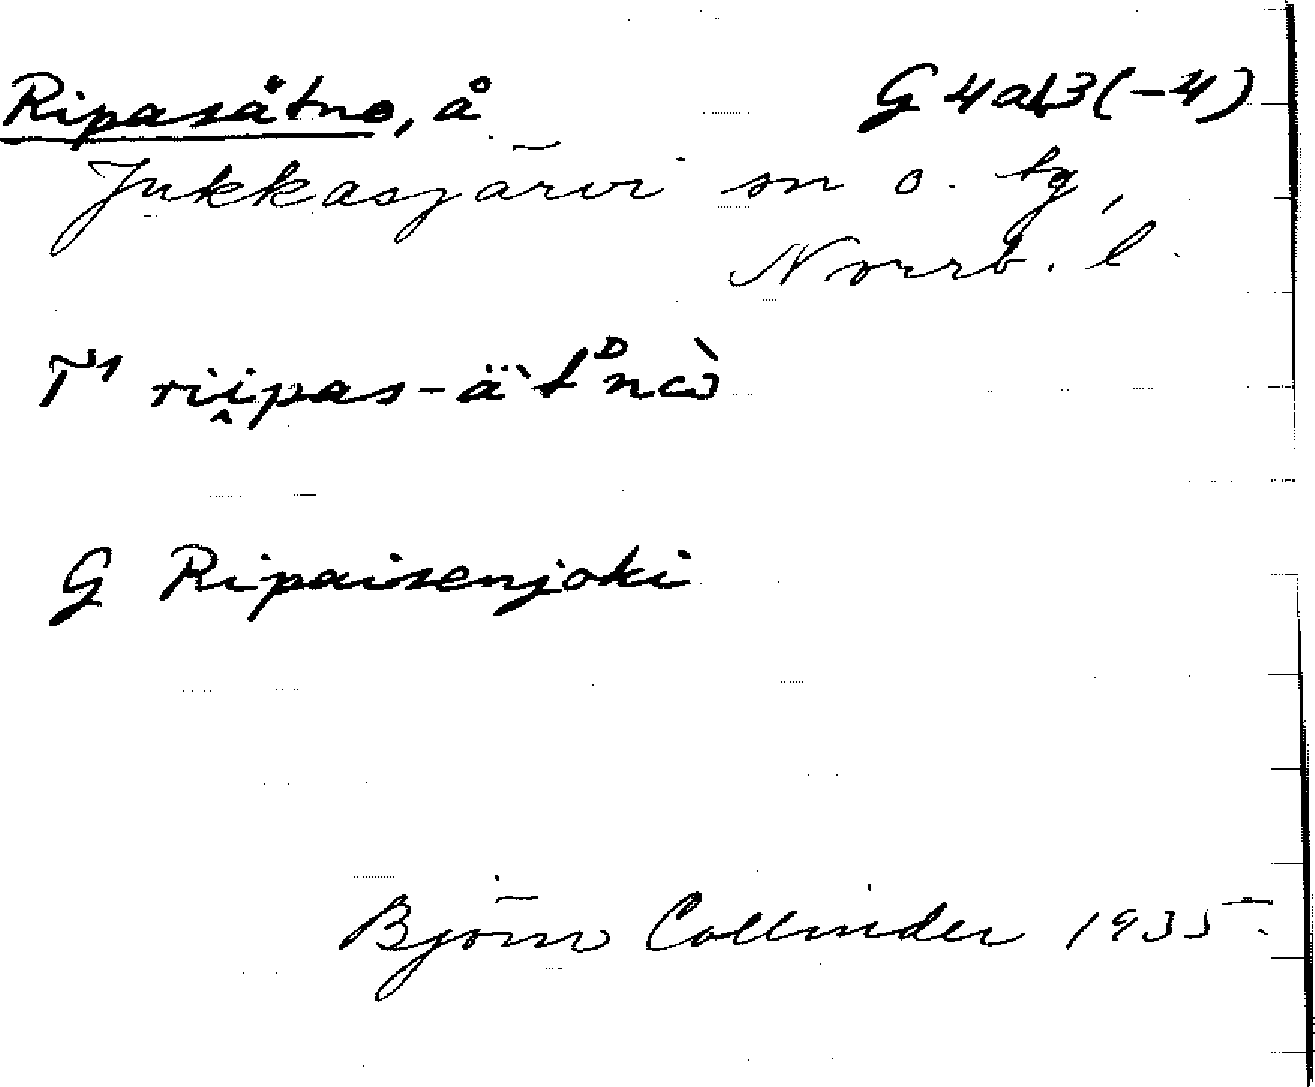 Ripasätno, å G 4a13(-4)
Jukkasjärvi sn o. tg,
Norrb. l.
T¹ rii̭pas-ä`tᴰnὼ
G Ripaisenjoki
Björn Collinder 1935.